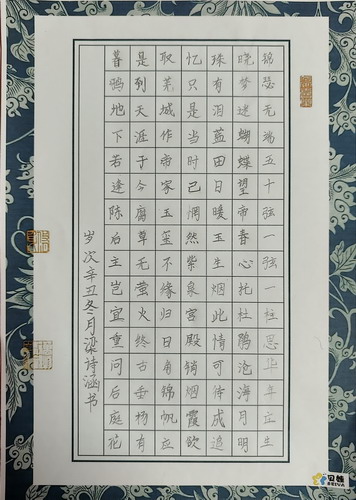 锦瑟无端五十弦一弦一柱思华年庄生
晓梦迷蝴蝶望帝春心托杜鹃沧海月明
珠有泪蓝田日暖玉生烟此情可待成追
忆只是当时已惘然紫泉宫殿锁烟霞欲
取芜城作帝家玉玺不缘归日角锦帆应
是到天涯于今腐草无萤火终古垂杨有
暮鸦地下若逢陈后主岂宜重问后庭花
岁次辛丑冬月梁诗涵书